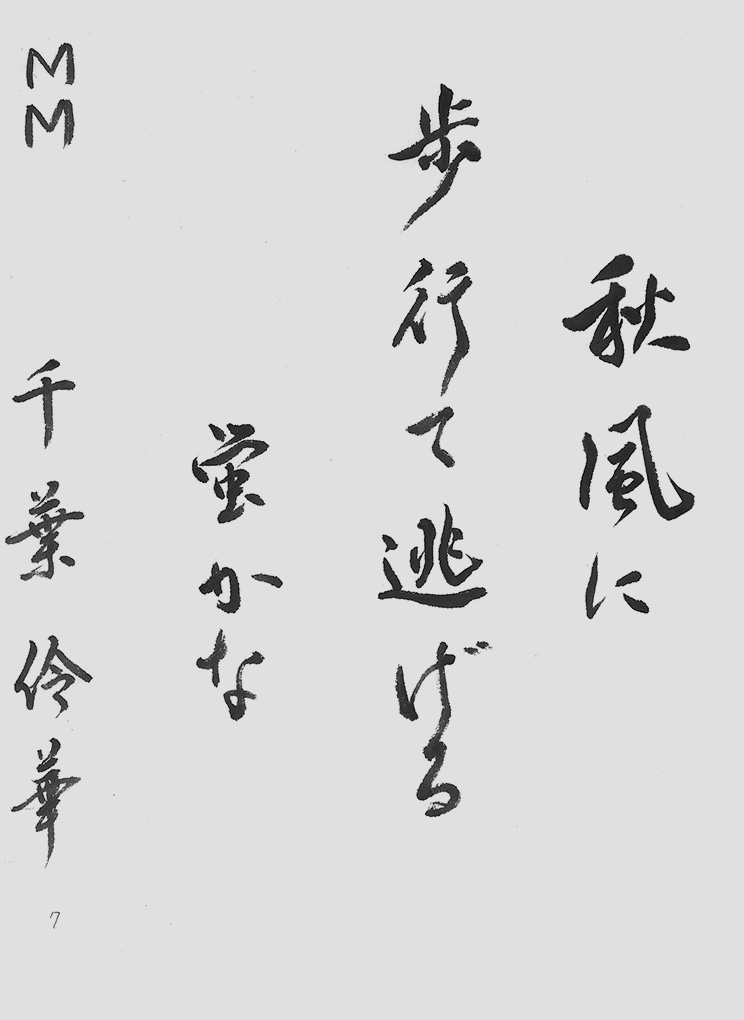 秋風に
歩行て逃げる
蛍かな
MM 千葉伶華
7